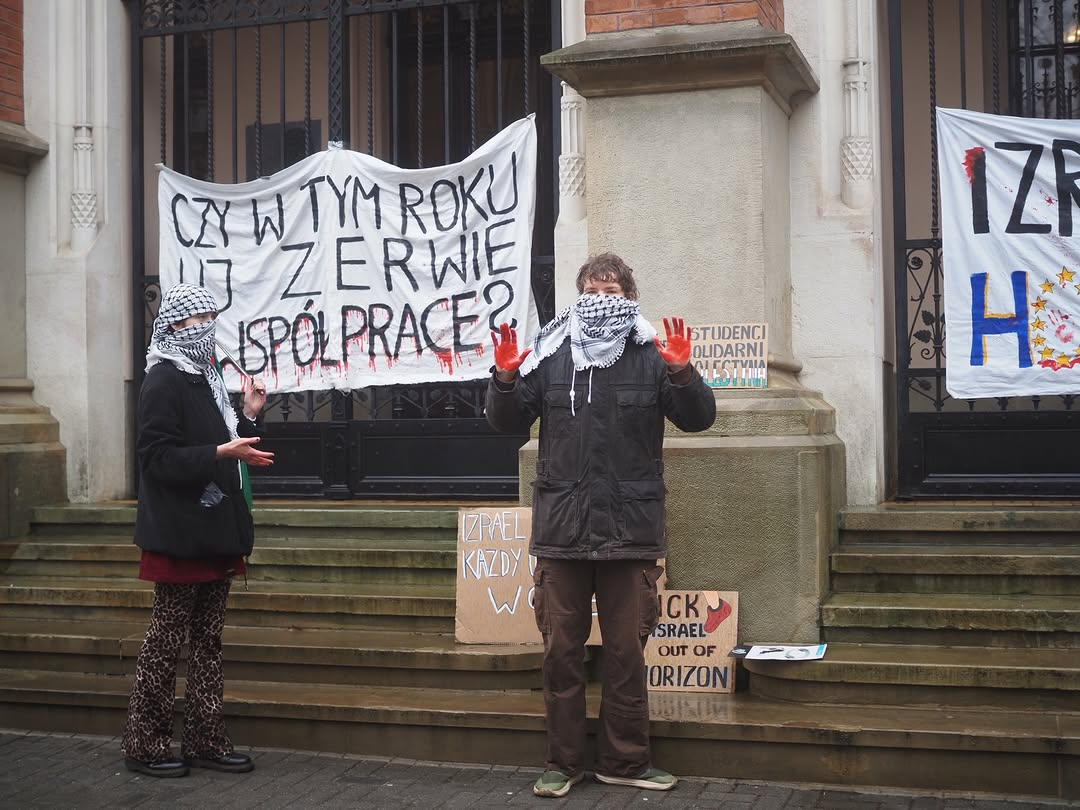 CZY W TYM ROKU
UJ ZERWIE
WSPÓŁPRACĘ?
IZR
H
STUDENCI
SOLIDARNI
PALESTYNĄ
IZRAEL
KAŻDY
W
KICK
ISRAEL
OUT OF
HORIZON